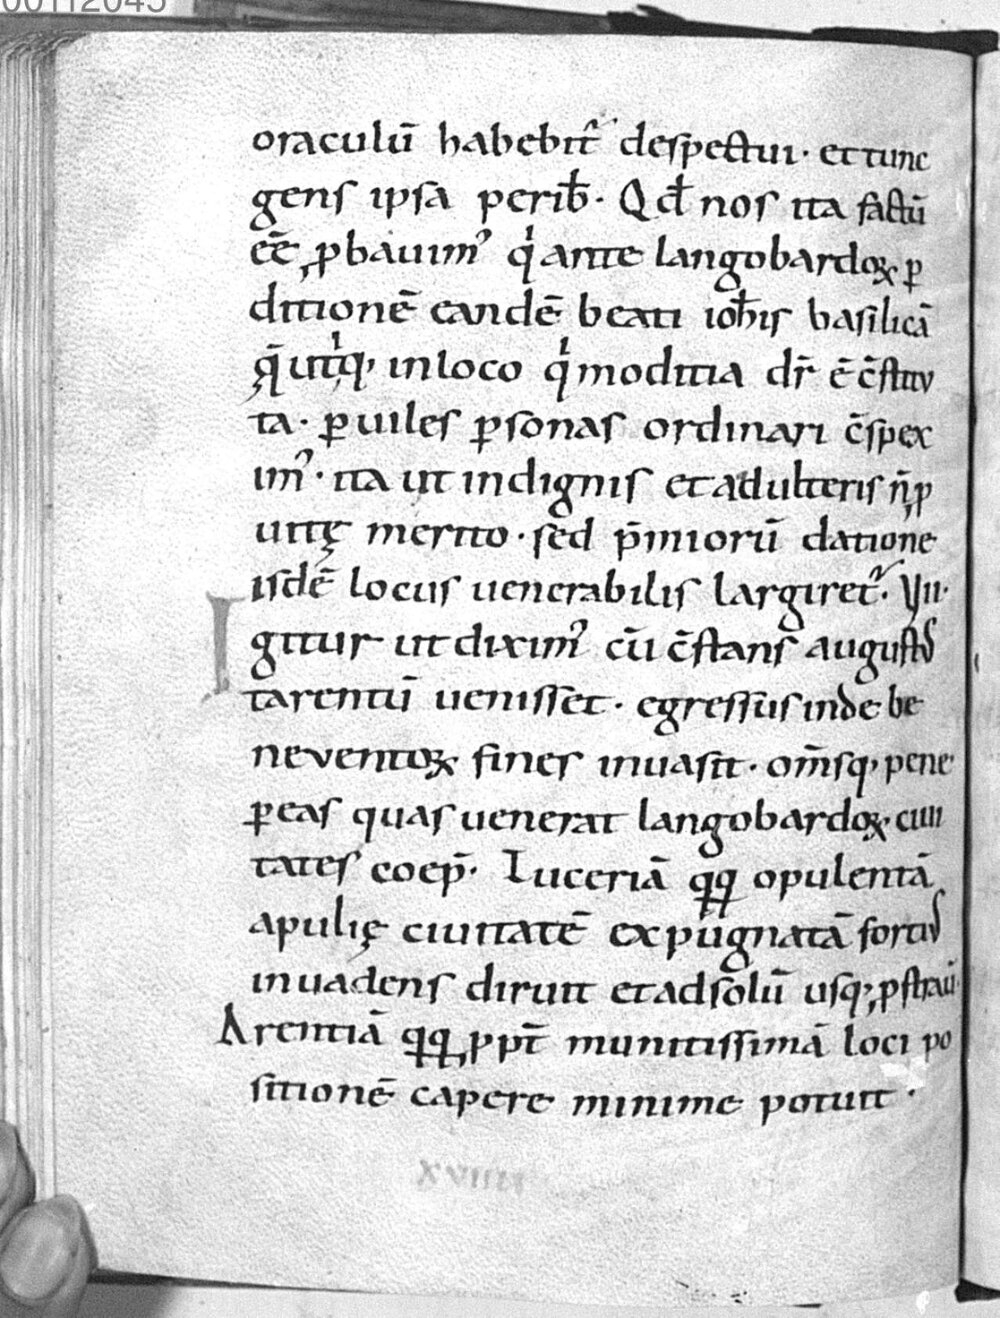 00112045
oraculū habebit᷑ despectui · et tunc
gens ipsa perib̄ · Qđ nos ita factū
eē ꝓbauim᷒ qͥ ante langobardoꝝ ꝑ
ditionē eandē beati ioh̄is basilicā
q̄ utiqꝫ in loco qͥ moditia dr̄ ē c̄stitu
ta · ꝑ uiles ꝑsonas ordinari c̄spex
im᷒ · ita ut indignis et adulteris n̄ ꝓ
uitę merito · sed p̄miorū datione
isdē locus uenerabilis largiret᷑ · VII·
Igitur ut dixim᷒ cū c̄stans augustus
tarentū uenisset · egressus inde be
neventoꝝ fines inuasit · om̄sqꝫ pene
ꝑ eas quas uenerat langobardoꝝ ciui
tates coep̄ · Luceriā qꝗ opulentā
apulię ciuitatē expugnatā fortius
inuadens diruit et ad solū usqꝫ ꝓstrauit
Arentiā qꝗ ꝓpt̄ munitissimā loci po
sitionē capere minime potuit ·
XVIIII